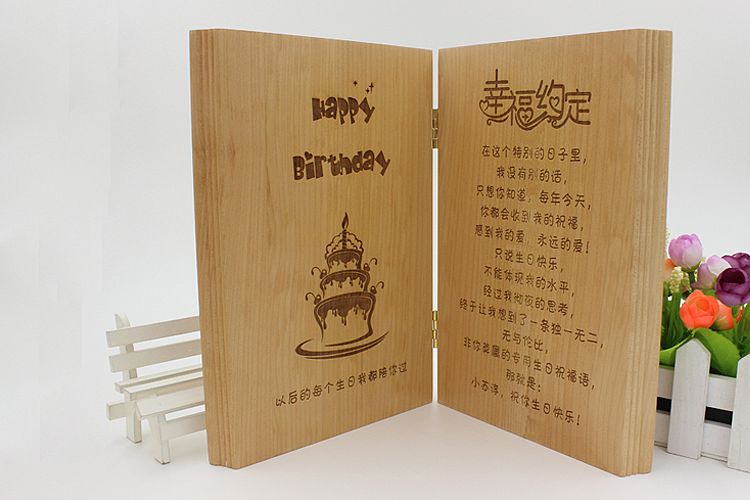 Happy
Birthday
以后的每个生日我都陪你过
幸福约定
在这个特别的日子里，
我没有别的话，
只想你知道，每年今天，
你都会收到我的祝福，
感到我的爱，永远的爱！
只说生日快乐，
不能体现我的水平，
经过我彻夜的思考，
终于让我想到了一条独一无二，
无与伦比，
非你莫属的专用生日祝福语，
那就是：
小苏谆，祝你生日快乐！